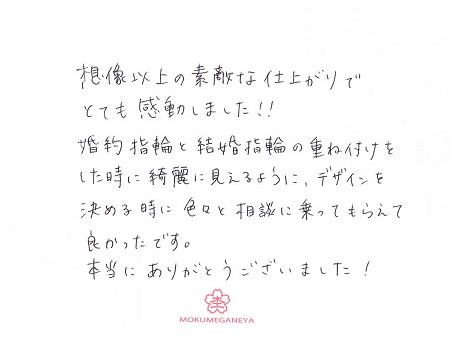 想像以上の素敵な仕上がりで
とても感動しました!!
婚約指輪と結婚指輪の重ね付けを
した時に綺麗に見えるように、デザインを
決める時に色々と相談に乗ってもらえて
良かったです。
本当にありがとうございました!
MOKUMEGANEYA